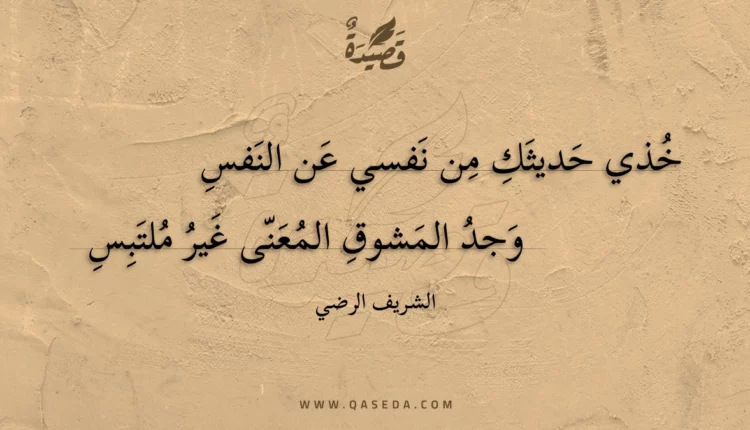 قَصِيْدَةٌ
خُذي حَديثَكِ مِن نَفسي عَن النَفسِ
وَجدُ المَشوقِ المُعَنّى غَيرُ مُلتَبِسِ
الشريف الرضي
WWW.QASEDA.COM